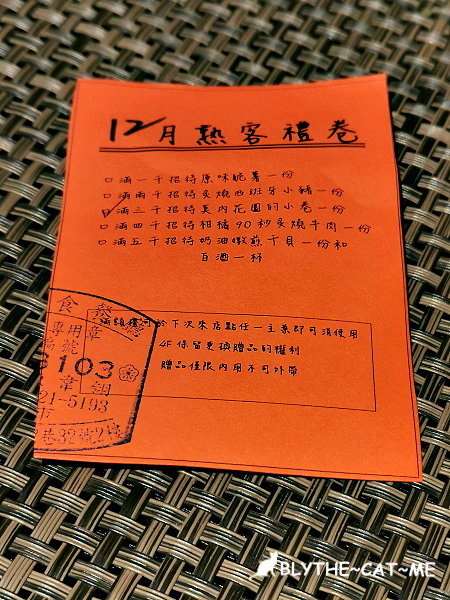 12月熟客禮卷
□滿一千招待原味脆薯一份
□滿兩千招待炙燒西班牙小豬一份
□滿三千招待莫內花園的小卷一份
□滿四千招待柑橘90秒炙燒牛肉一份
□滿五千招待奶油嫩煎干貝一份和
白酒一杯
滿額獲可於下次來店點任一主菜即可消使用
4F保留更換贈品的權利
贈品僅限內用不可外帶
食
專用章
號
6103
章
21-5193
巷32號2樓
BLYTHE~CAT~ME